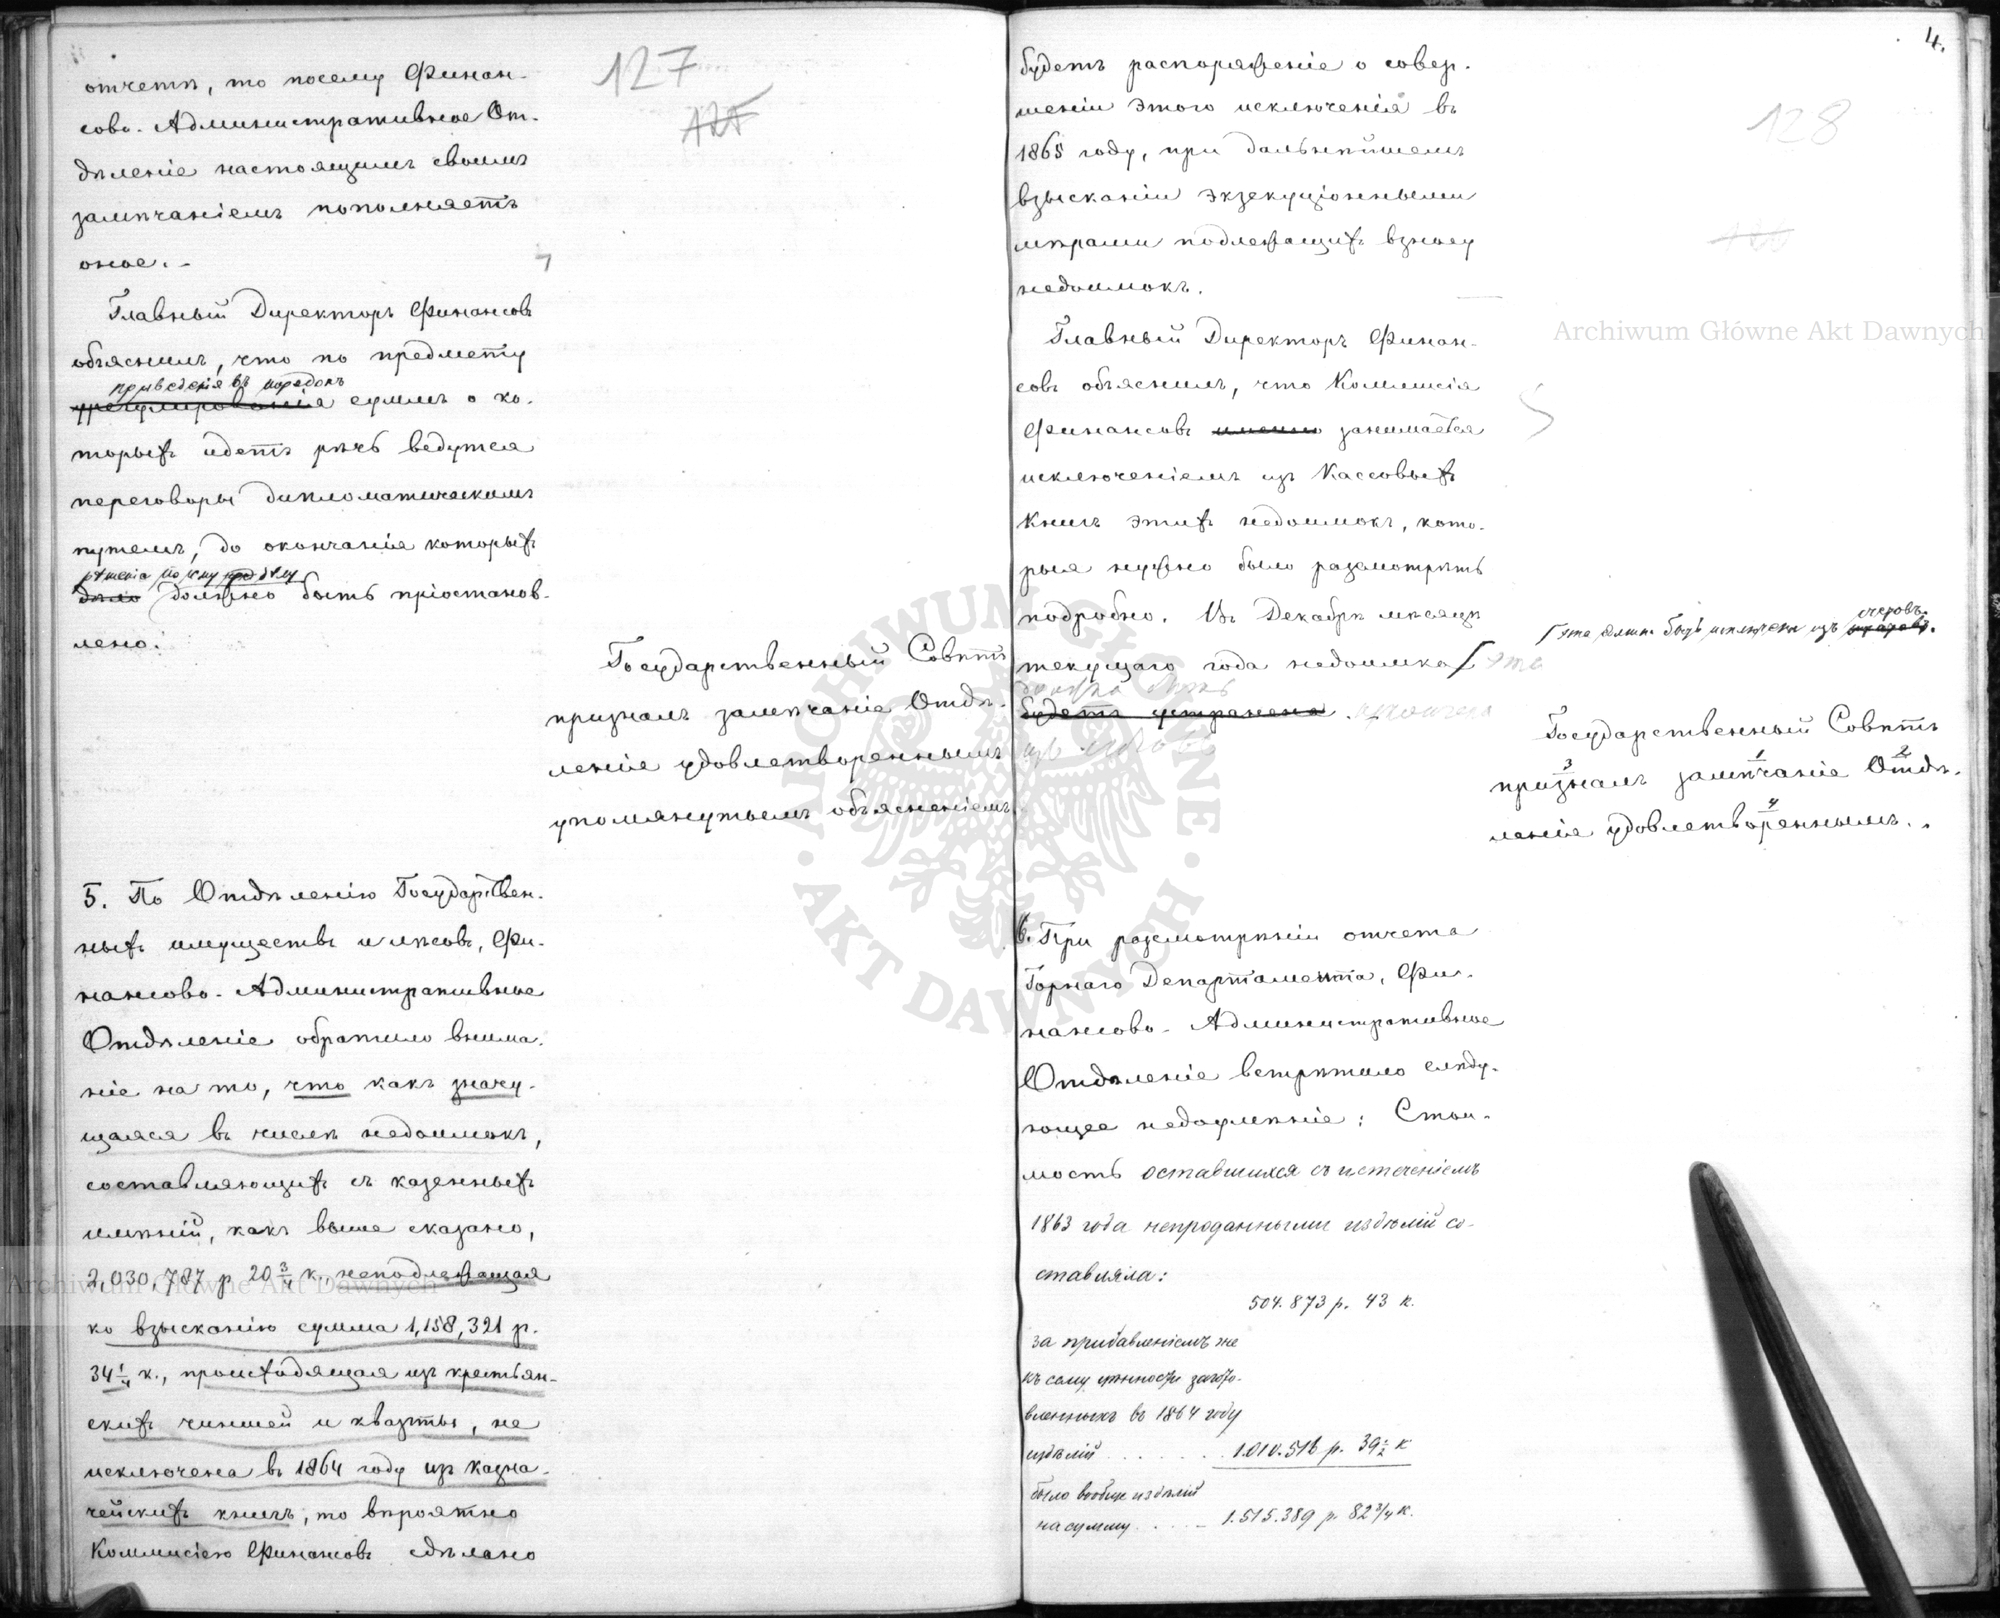 127
125
отчетѣ, то посему Финан-
сово-Административное От-
дѣленіе настоящимъ своимъ
замѣчаніемъ пополняетъ
оное.
Главный Директоръ Финансовъ
объяснилъ, что по предмету
приведенія въ порядокъ
урегулированія суммъ о ко-
торыхъ идетъ рѣчь ведутся
переговоры дипломатическимъ
путемъ, до окончанія которыхъ
рѣшенія по сему дѣлу
дѣло должно быть пріостанов-
лено.
Государственный Совѣтъ
призналъ замѣчаніе Отдѣ-
ленія удовлетвореннымъ
упомянутымъ объясненіемъ
5. По Отдѣленію Государствен-
ныхъ имуществъ и лѣсовъ, Фи-
нансово-Административное
Отдѣленіе обратило внима-
ніе на то, что какъ значу-
щаяся въ числѣ недоимокъ,
составляющихъ съ казенныхъ
имѣній, какъ выше сказано,
2,030,787 р 20 3/4 к., неподлежащая
ко взысканію сумма 1,158,321 р.
34 1/4 к., происходящая изъ крестьян-
скихъ чиншей и кварты, не
исключена въ 1864 году изъ казна-
чейскихъ книгъ, то вѣроятно
Коммисіею Финансовъ сдѣлано
4.
128
будетъ распоряженіе о совер-
шеніи этого исключенія въ
1865 году, при дальнѣйшемъ
взысканіи экзекуціонными
мѣрами подлежащихъ взносу
недоимокъ.
Главный Директоръ Финан-
совъ объяснилъ, что Коммисія
Финансовъ именно занимается
исключеніемъ изъ Кассовыхъ
Книгъ этихъ недоимокъ, кото-
рыя нужно было разсмотрѣть
подробно. Въ Декабрѣ мѣсяцѣ
текущаго года недоимка эта
должна быть
будетъ устранена
изъ
быть исключена изъ
счетовъ.
Государственный Совѣтъ
3 1 2
призналъ замѣчаніе Отдѣ-
4
ленія удовлетвореннымъ.
6. При разсмотрѣніи отчета
Горнаго Департамента, Фи-
нансово-Административное
Отдѣленіе встрѣтило слѣду-
ющее недоумѣніе: Стои-
мость оставшихся съ истеченіемъ
1863 года непроданными издѣлій со-
ставляла:
504.873 р. 43 к.
за прибавленіемъ же
къ сему цѣнности загото-
вленныхъ въ 1864 году
издѣлій . . . . . . . 1.010.516 р. 39 1/2 к
было вообще издѣлій
на сумму . . . . 1.515.389 р. 82 3/4 к.
Archiwum Główne Akt Dawnych
ARCHIWUM GŁÓWNE · AKT DAWNYCH ·
Archiwum Główne Akt Dawnych